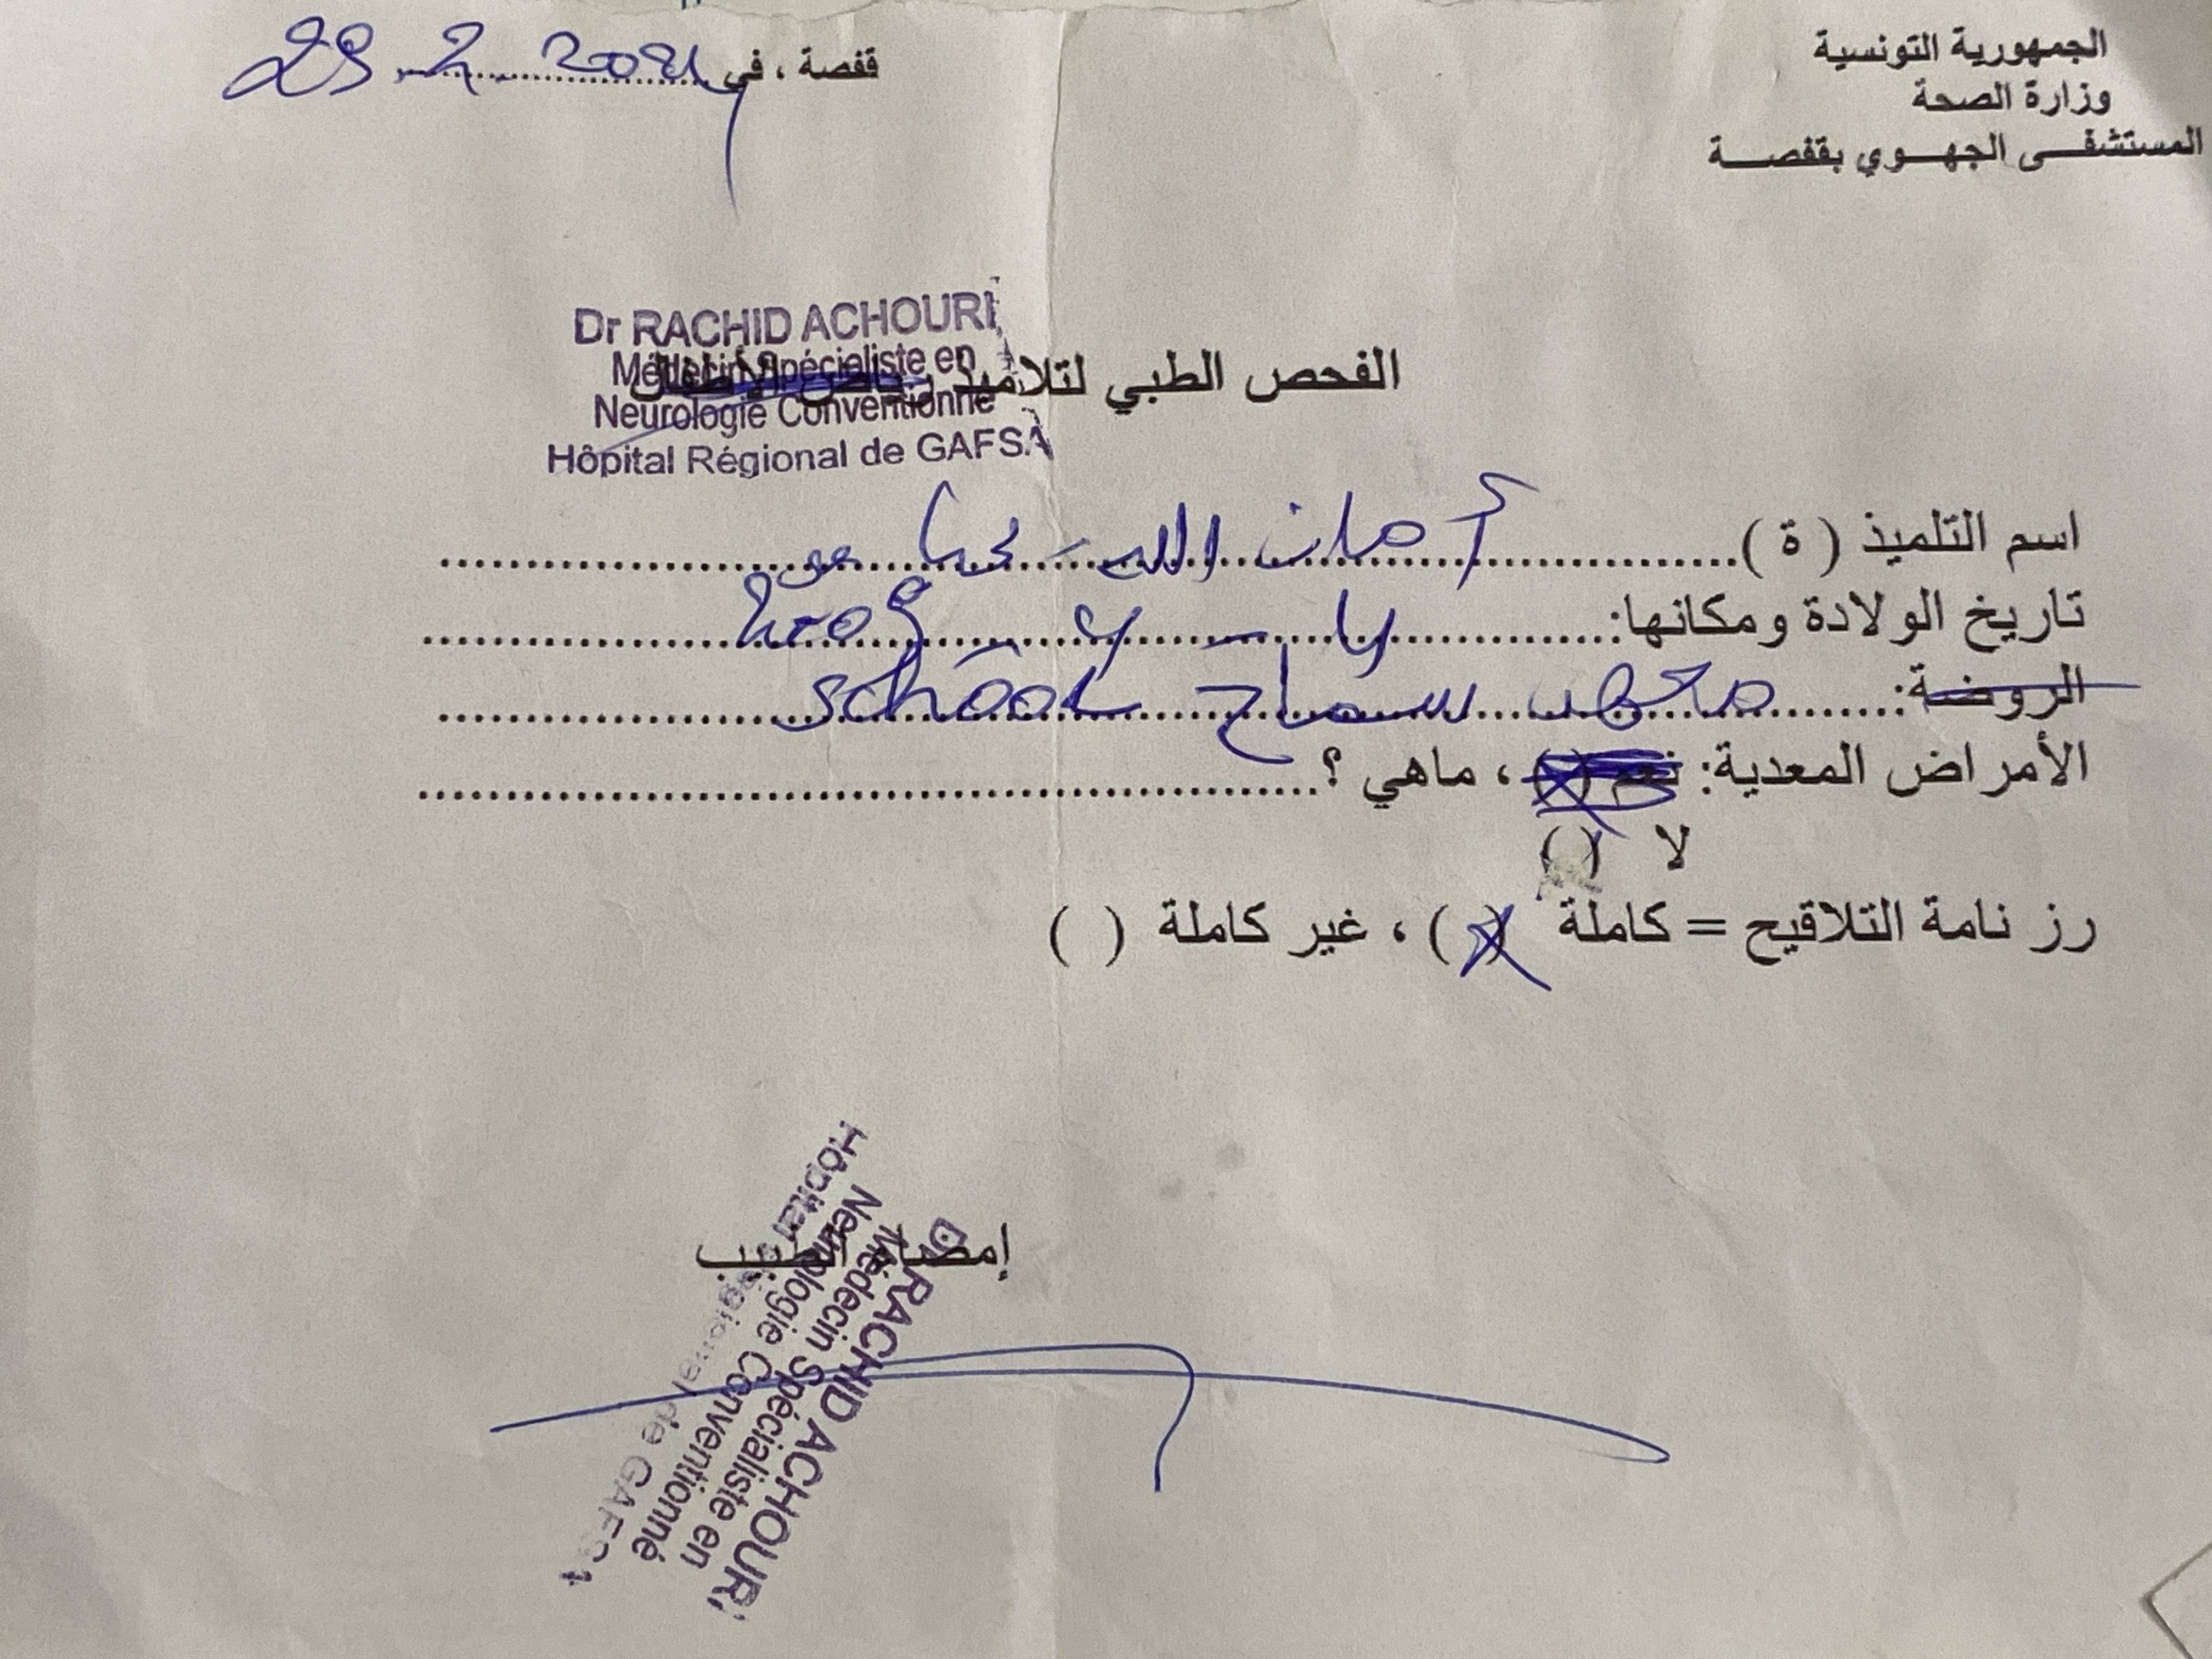 الجمهورية التونسية
وزارة الصحة
المستشفى الجهوي بقفصة
قفصة ، في 29.2.2024
Dr RACHID ACHOURI
Médecin Spécialiste en
Neurologie Conventionné
Hôpital Régional de GAFSA
الفحص الطبي لتلاميذ رياض الأطفال
اسم التلميذ ( ة ) أمان الله
تاريخ الولادة ومكانها:
الروضة: معهد سماح school
الأمراض المعدية: نعم ( ) ، ماهي ؟
لا ( )
رز نامة التلاقيح = كاملة (X) ، غير كاملة ( )
إمضاء الطبيب
Dr RACHID ACHOURI
Médecin Spécialiste en
Neurologie Conventionné
Hôpital Régional de GAFSA